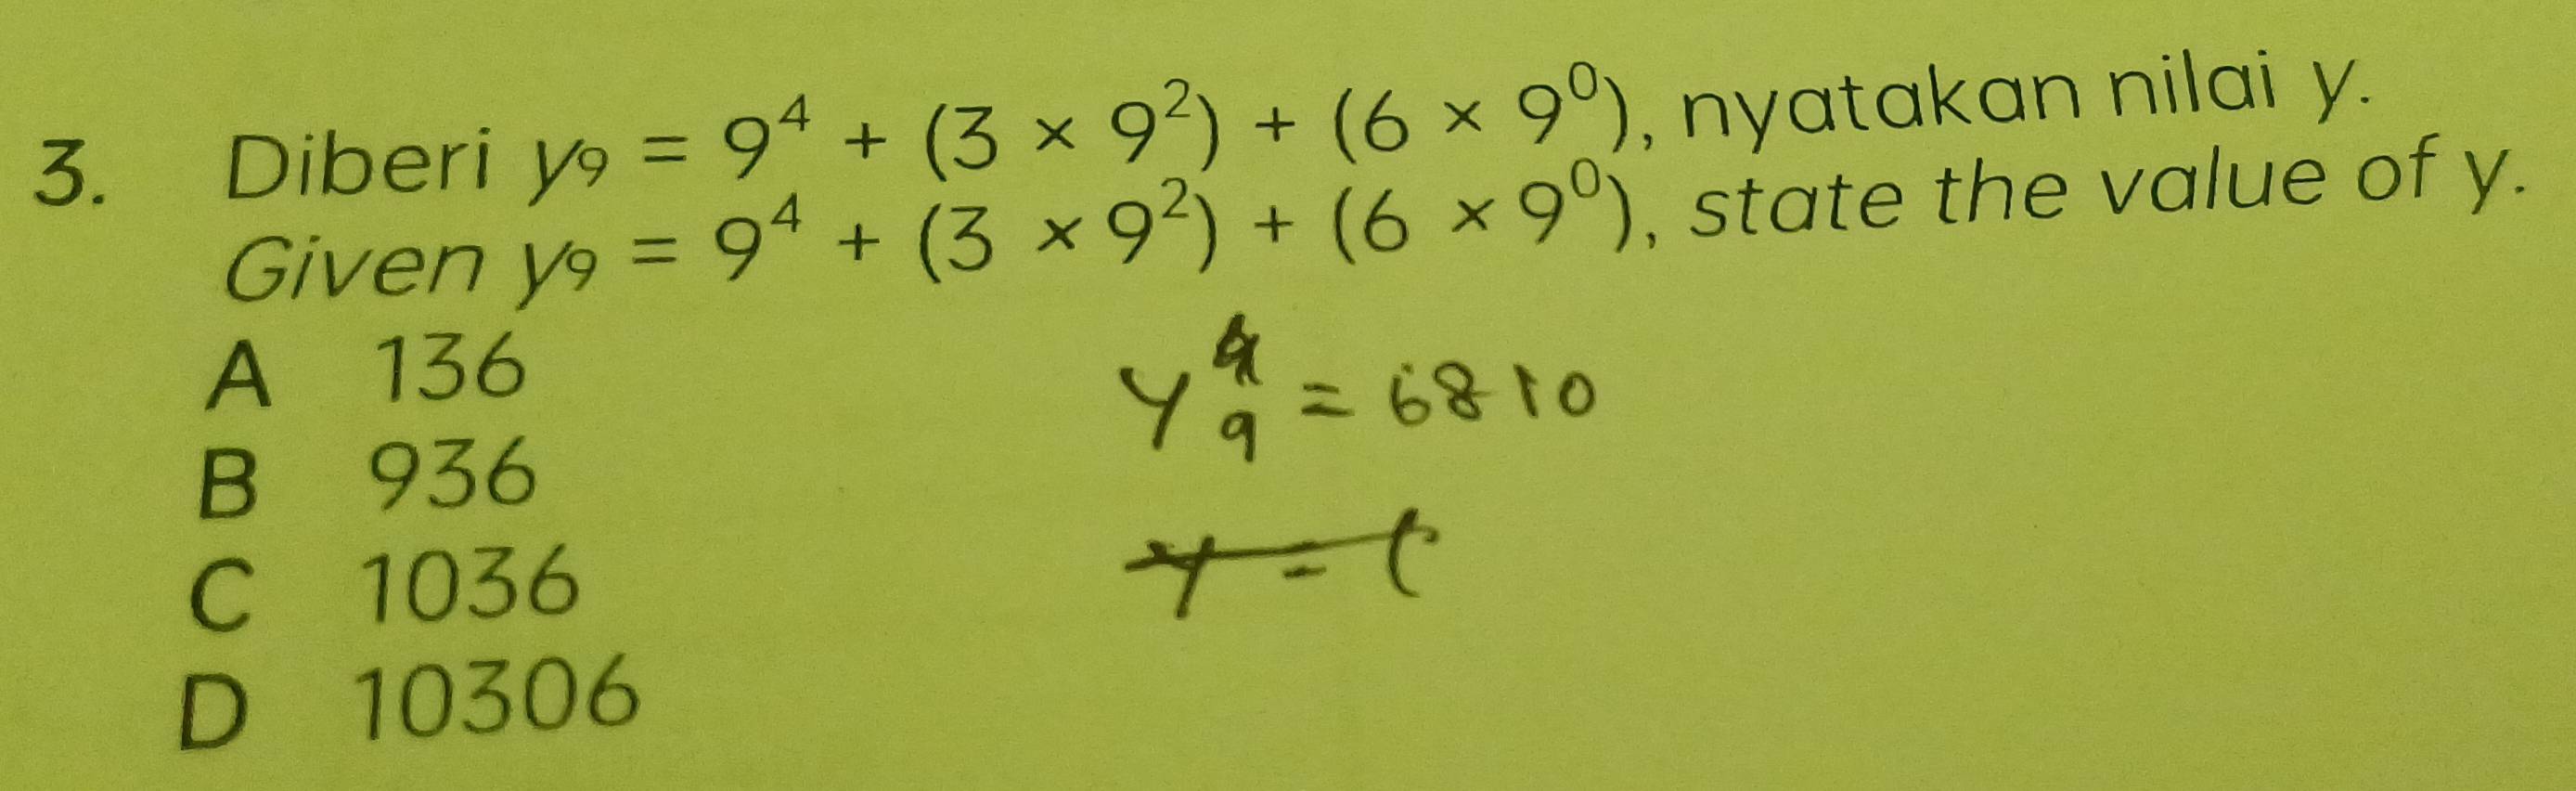 3. Diberi y₉ = 9⁴ + (3 × 9²) + (6 × 9⁰), nyatakan nilai y.
Given y₉ = 9⁴ + (3 × 9²) + (6 × 9⁰), state the value of y.
A 136
B 936
C 1036
D 10306
y₉ = 6810